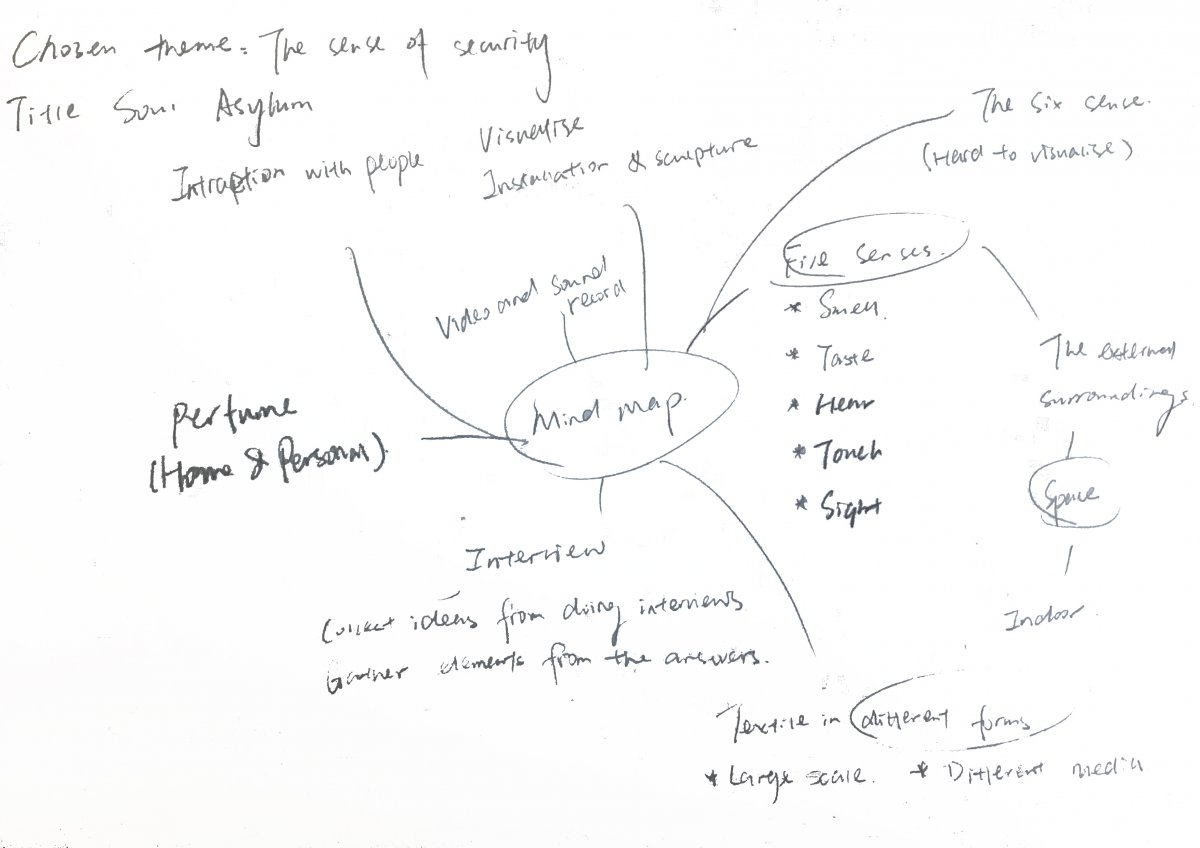 Chosen theme: The sense of security
Title Soul Asylum
Intraption with people
Visualise
Installation & sculpture
The six sense.
(Hard to visualise)
Video and sound
record
Five senses.
* Smell.
* Taste
* Hear
* Touch
* Sight
The external
surroundings
Space
Indoor.
Mind map.
Perfume
(Home & Personal).
Interview
Collect ideas from doing interviews
Gather elements from the answers.
Textile in different forms
* Large scale. * Different media